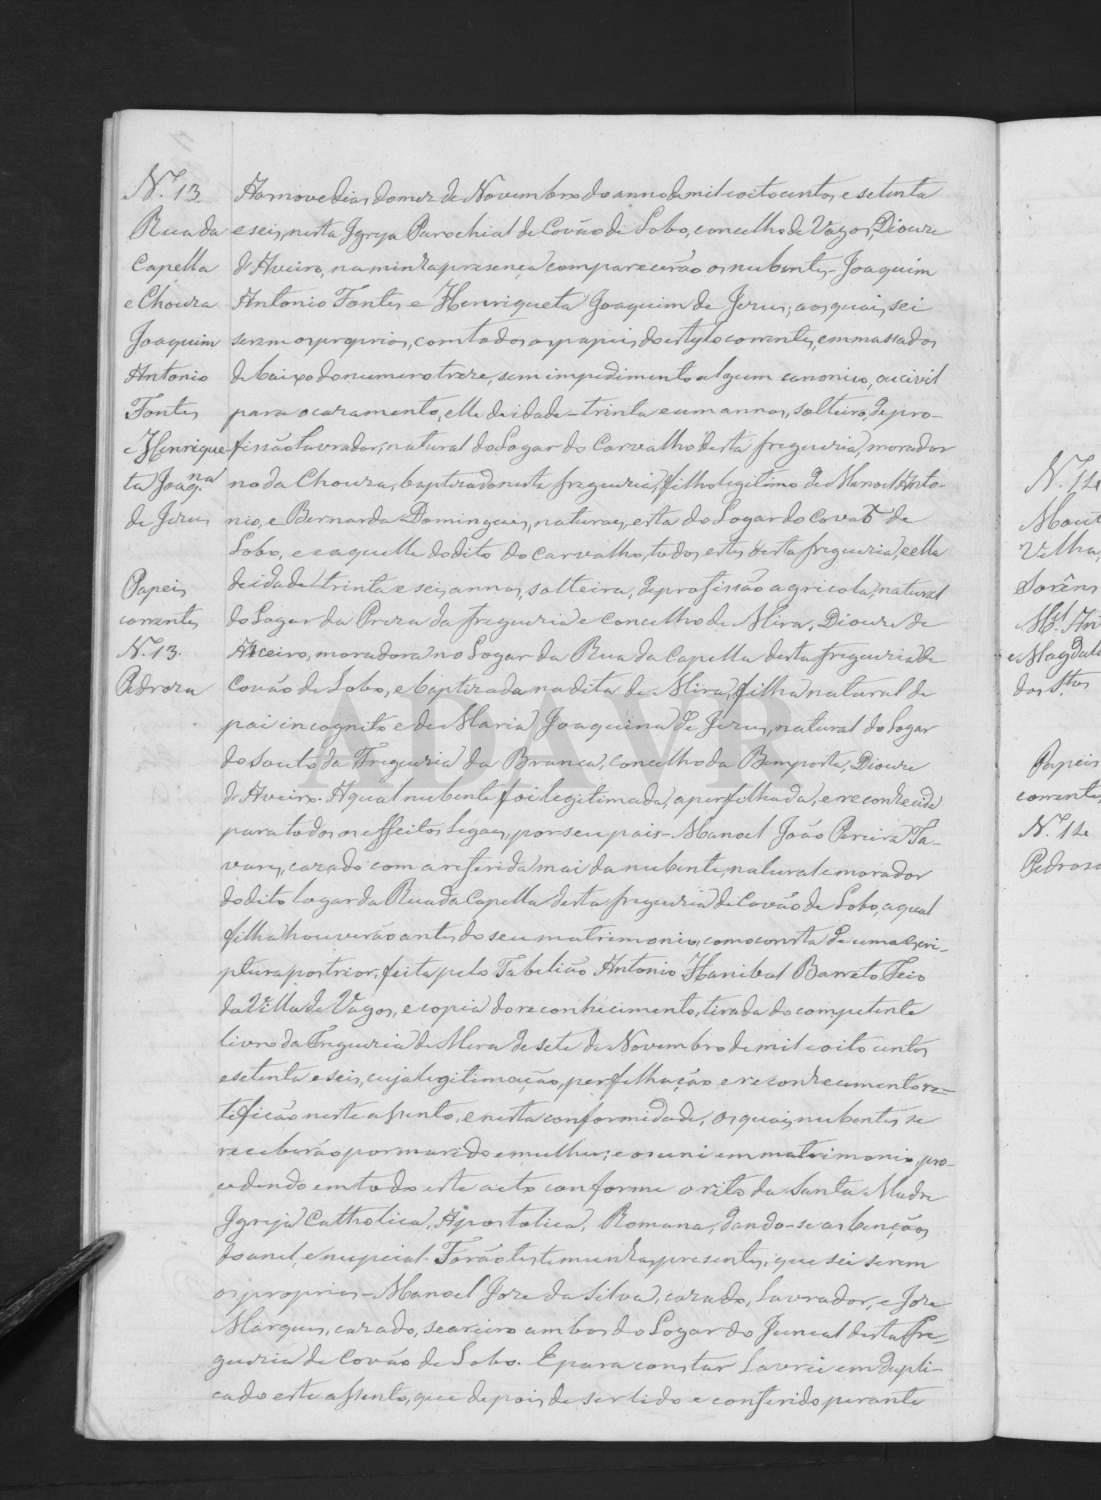 N.º 13
Rua da
Capella
e Chouza
Joaquim
Antonio
Fontes
e Henrique-
ta Joaq.na
de Jesus
Papeis
correntes
N.º 13.
Pedroza
Aos nove dias do mez de Novembro do anno de mil e oito centos e setenta
e seis, nesta Igreja Parochial de Covão de Lobo, concelho de Vagos, Dioceze
d'Aveiro, na minha presença comparecerão os nubentes - Joaquim
Antonio Fontes e Henriqueta Joaquim de Jesus, aos quais sei
serem os proprios, com todos os papeis do estylo correntes, emmassados
de baixo do numero treze, sem impedimento algum canonico, ou civil
para o cazamento, elle de idade - trinta e um annos, solteiro, de pro-
fissão Lavrador, natural do Logar do Carvalho desta freguezia, morador
no da Chouza, baptizado nesta freguezia, filho legitimo de Manoel Anto-
nio, e Bernarda Domingues, naturaes, esta do Logar do Covão de
Lobo, e aquelle do dito do Carvalho, todos estes desta freguezia, e ella
de idade trinta e seis annos, solteira, de profissão agricola, natural
do Logar da Preza da freguezia e Concelho de Mira, Dioceze de
Aveiro, moradora no Logar da Rua da Capella desta freguezia de
Covão de Lobo, e baptizada na dita de Mira, filha natural de
pai incognito e de Maria Joaquina de Jesus, natural do Logar
do Souto da Freguezia da Branca, Concelho da Bemposta, Dioceze
d'Aveiro. A qual nubente foi legitimada, aperfilhada, e reconhecida
para todos os effeitos legaes, por seu pais - Manoel João Pereira Ta-
vares, cazado com a referida mai da nubente, natural e morador
do dito logar da Rua da Capella desta freguezia de Covão de Lobo, a qual
filha houverão antes do seu matrimonio, como consta de uma Escri-
ptura posterior, feita pelo Tabelião Antonio Hanibal Barreto Feio
da Villa de Vagos, e copia do reconhecimento, tirada do competente
livro da Freguezia de Mira de sete de Novembro de mil e oito centos
e setenta e seis, cuja legitimação, perfilhação e reconhecimento re-
tificão neste assento, e nesta conformidade, os quaes nubentes se
receberão por marido e mulher; e os uni em matrimonio, pro-
cedendo em todo este acto conforme o rito da Santa Madre
Igreja Catholica, Apostolica, Romana, dando-se as benções
do anel, e nupcial. Forão testemunhas presentes, que sei serem
os proprios - Manoel Joze da Silva, cazado, Lavrador, e Joze
Marques, cazado, seareiro ambos do Logar do Juncal desta Fre
guezia de Covão de Lobo. E para constar Lavrei em dupli-
cado este assento, que depois de ser lido e conferido perante
N.º 14
Velha,
M.el An
e Magdale
dos S.tos
Papeis
correntes
N.º 14
Pedroza
ADAVR